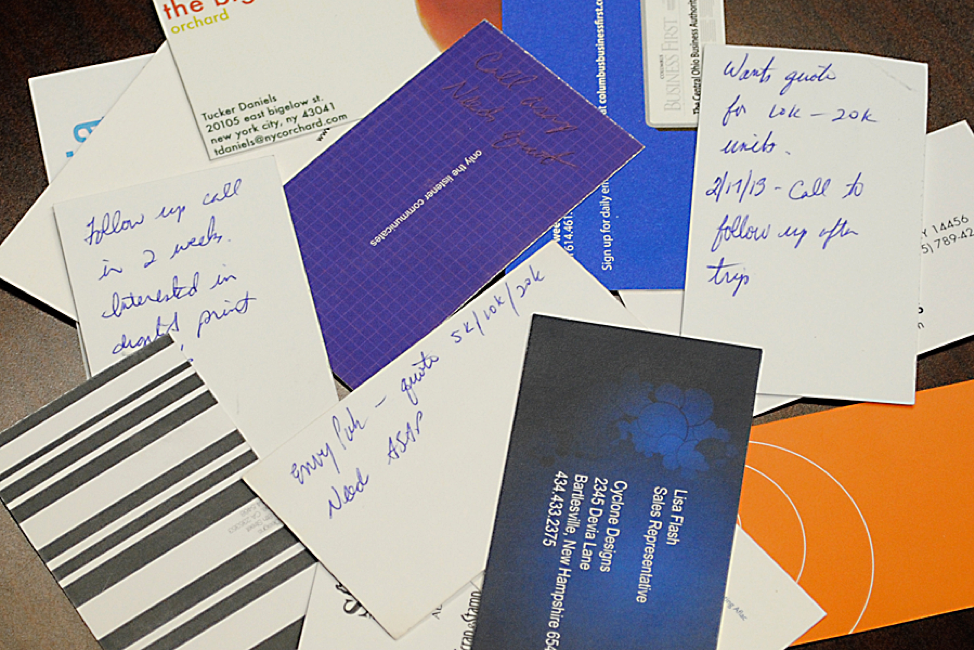 the big
orchard
Tucker Daniels
20105 east bigelow st.
new york city, ny 43041
tdaniels@nycorchard.com
Call away
only the listener communicates
at columbusbusinessfirst.com
Sign up for daily em
614.461
COLUMBUS
BUSINESS FIRST
The Central Ohio Business Authority
Wants quote
for 10k - 20k
units.
2/17/13 - Call to
follow up after
trip
Y 14456
5) 789-42
Follow up call
in 2 weeks.
Interested in
digital print
Envy Pak - quote 5k/10k/20k
Need ASAP
Lisa Flash
Sales Representative
Cyclone Designs
2345 Devia Lane
Bartlesville, New Hampshire 654
434.433.2375